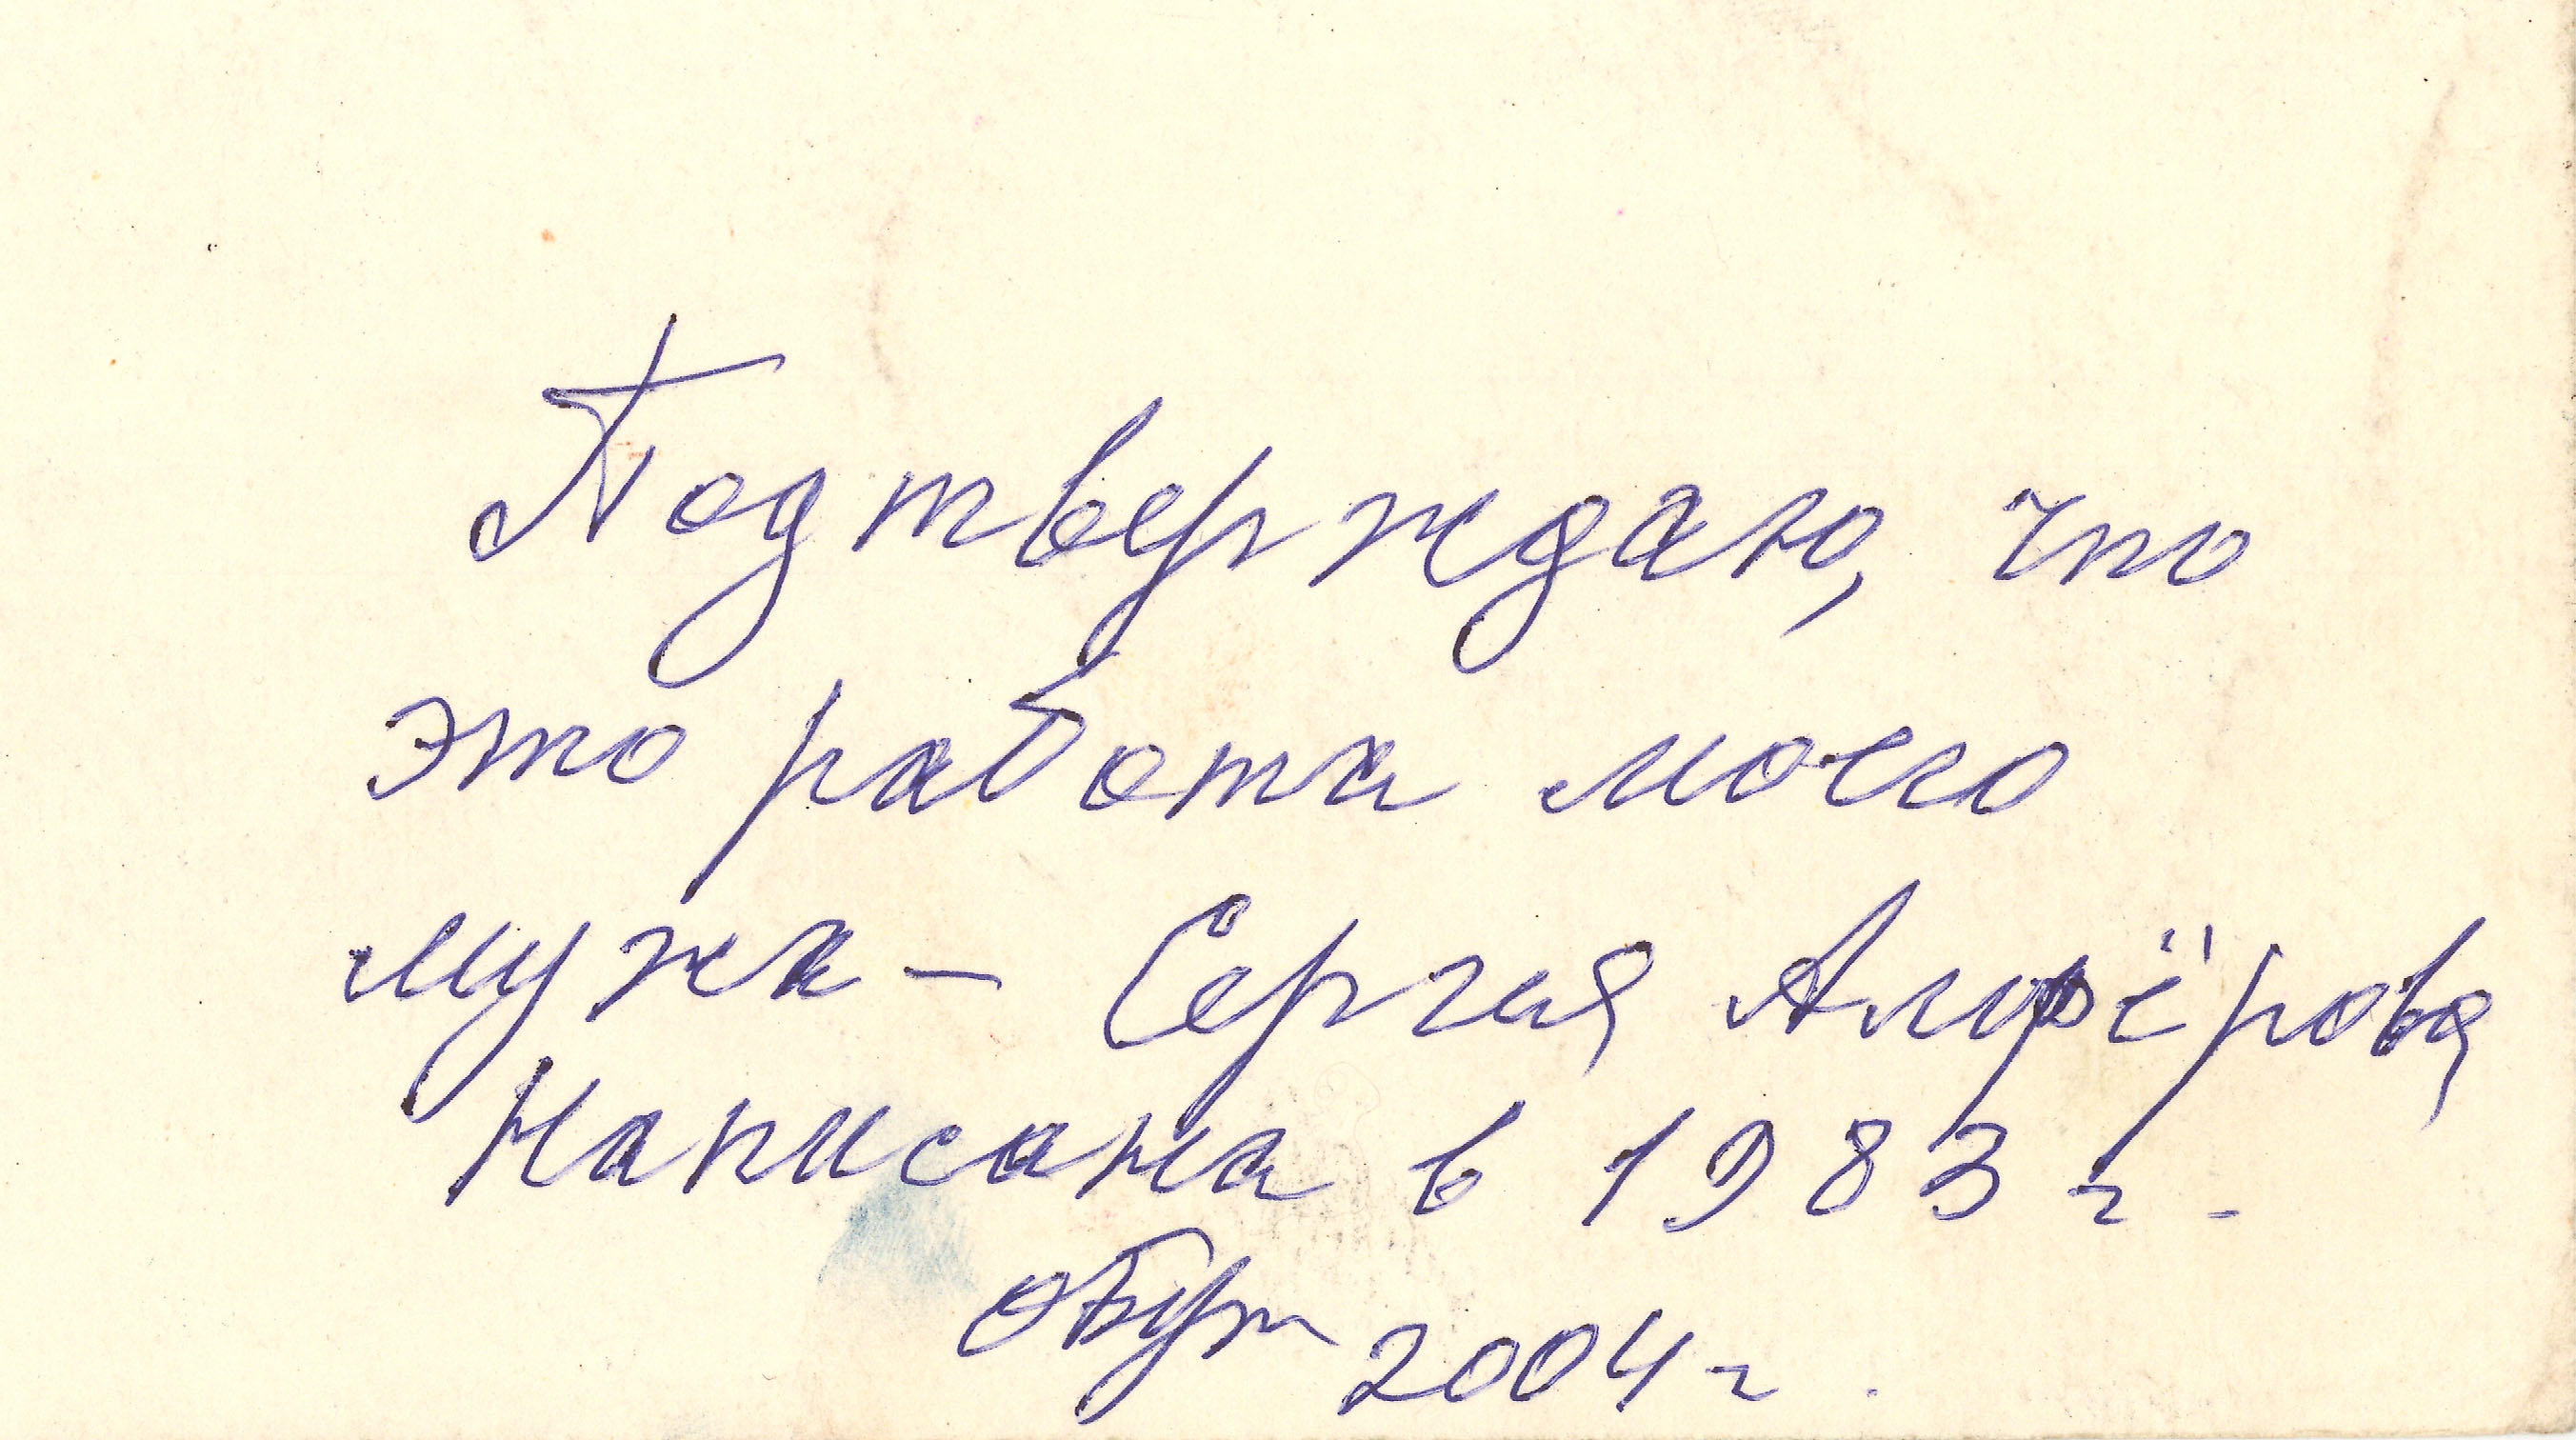 Подтверждаю, что
это работа моего
мужа – Сергея Алфёрова
Написана в 1983 г.
2004 г.